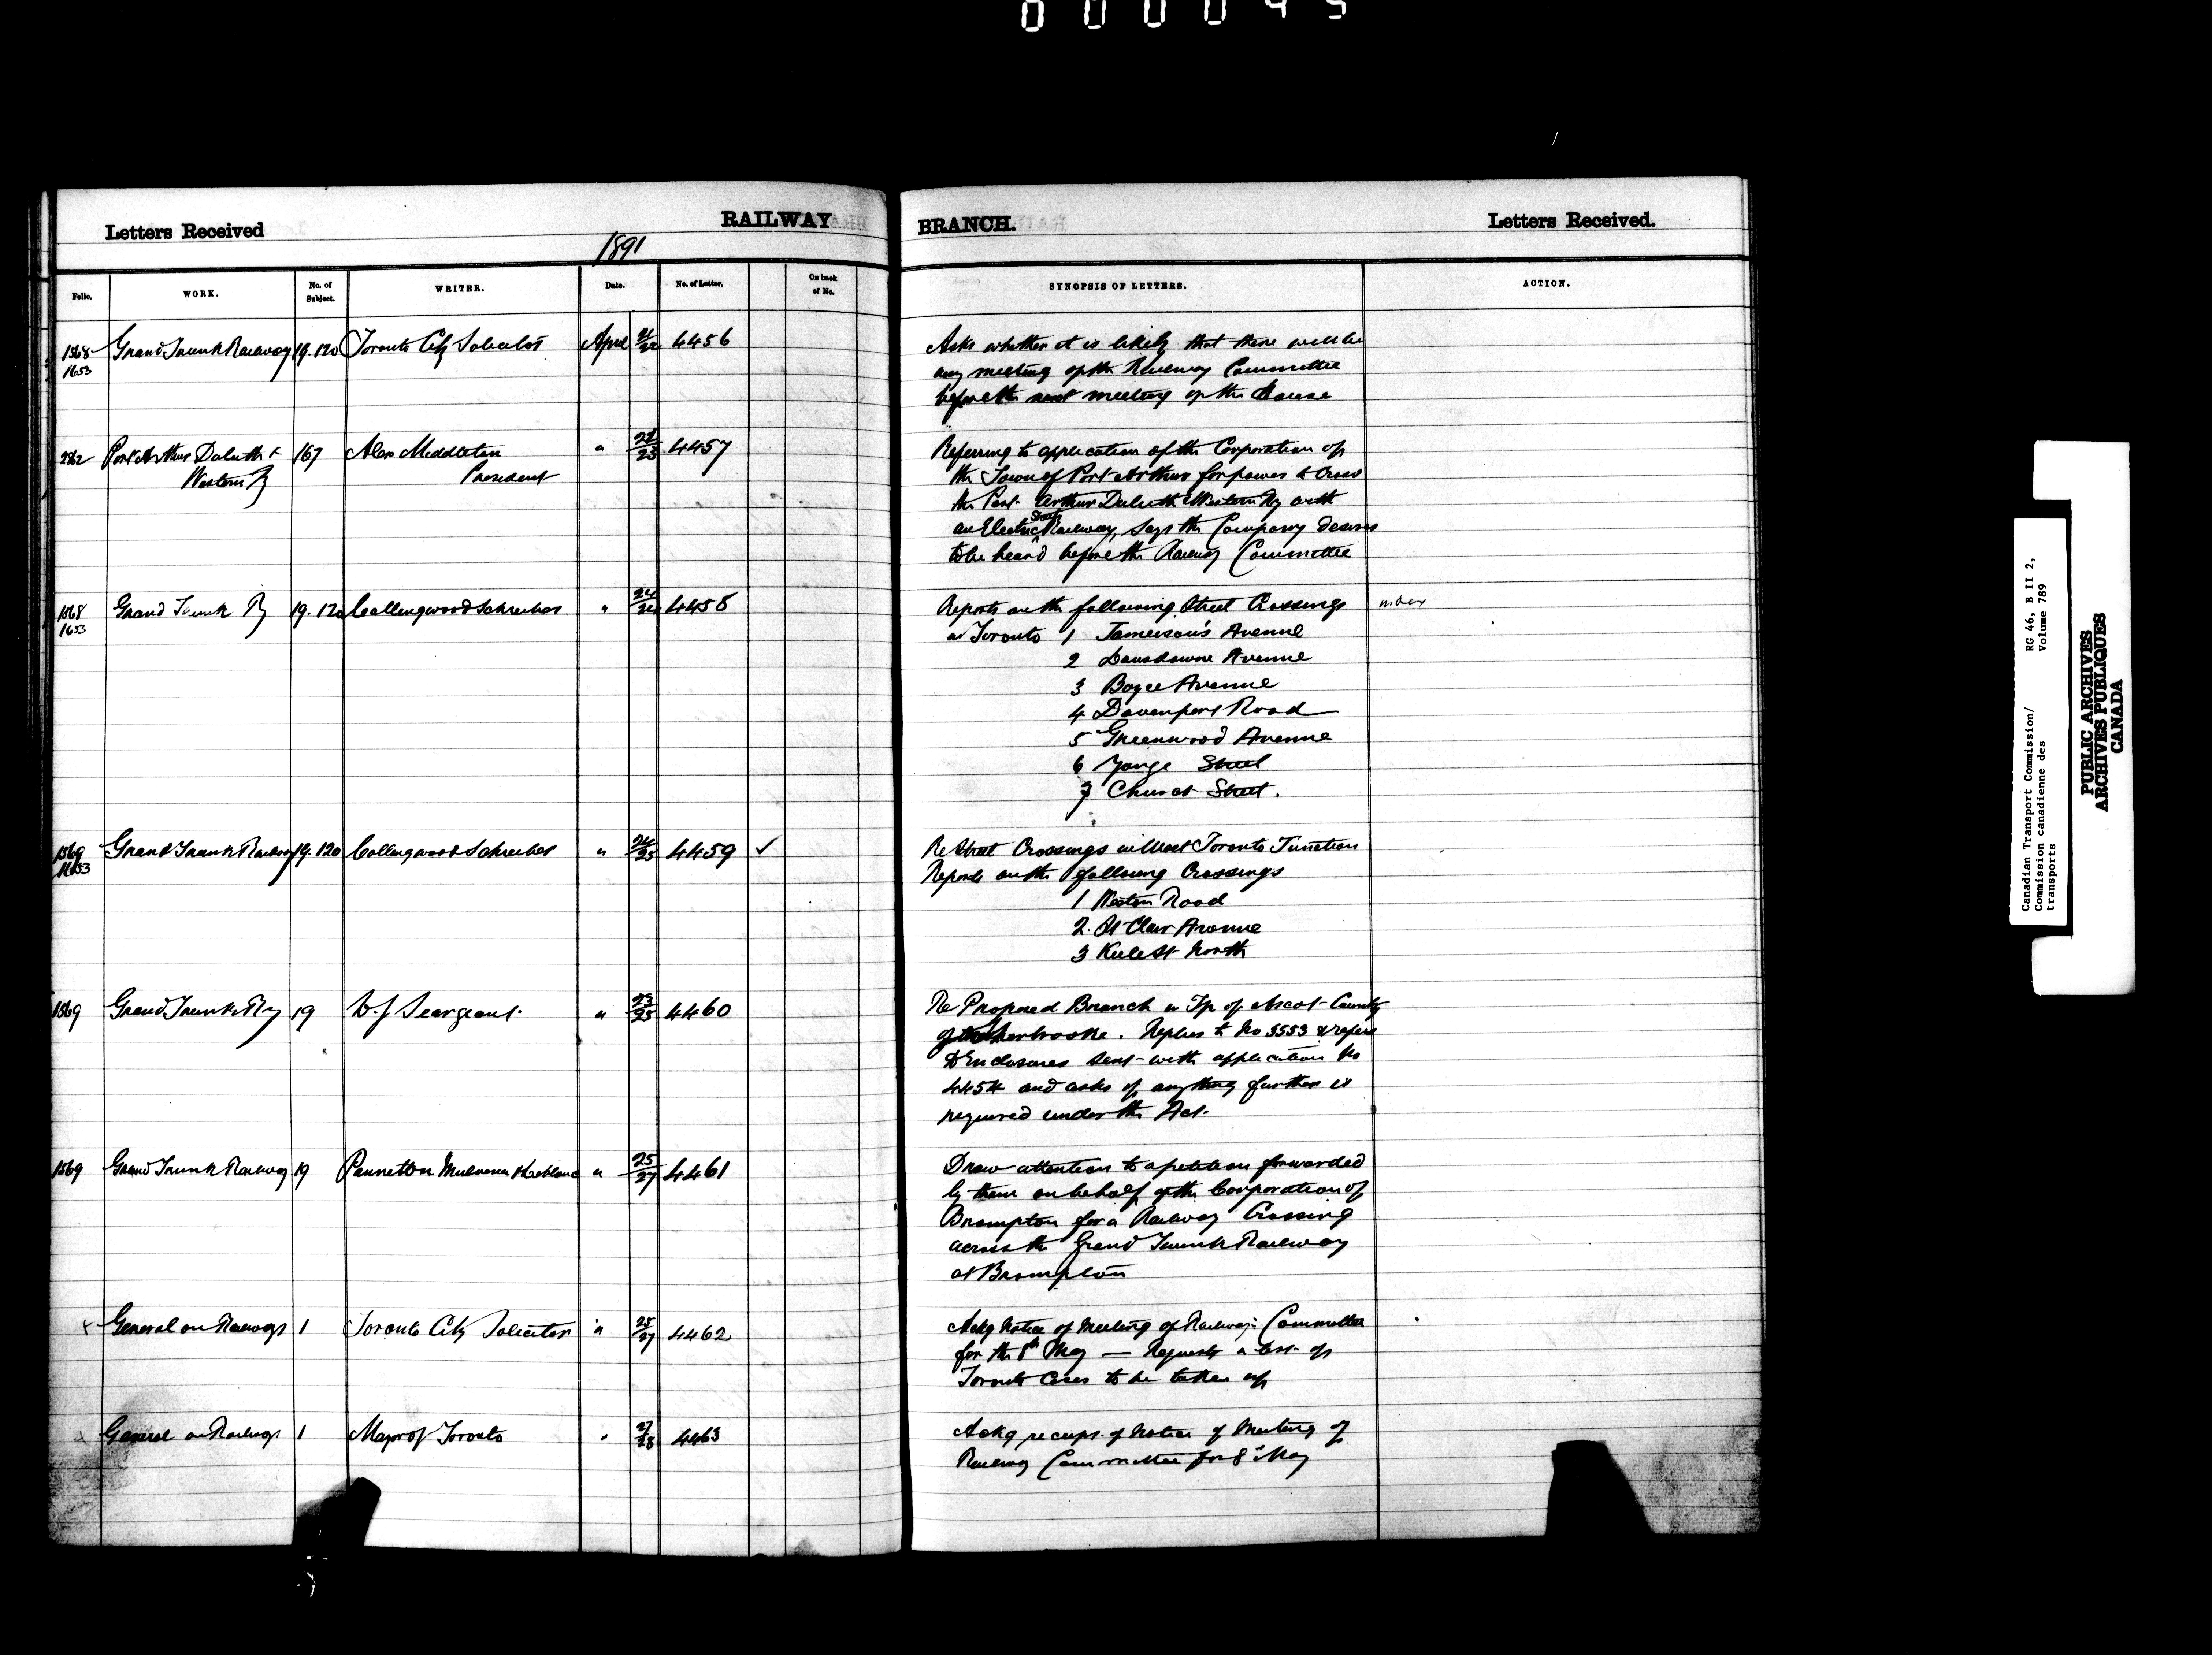 000043
Letters Received
RAILWAY
1891
Folio.
WORK.
No. of Subject.
WRITER.
Date.
No. of Letter.
On back of No.
1568 1653 Grand Trunk Railway 19.120 Toronto City Solicitor April 21/22 4456
2862 Port Arthur Duluth & 167 Alex Middleton " 22/23 4457
Western Ry President
1568 1653 Grand Trunk Ry 19.120 Collingwood Schreiber " 24/24 4458
1569 1653 Grand Trunk Railway 19.120 Collingwood Schreiber " 24/25 4459 ✓
1569 Grand Trunk Ry 19 W.J. Seargeant " 23/25 4460
1569 Grand Trunk Railway 19 Panneton Mulvena & Leblanc " 25/27 4461
x General on Railways 1 Toronto City Solicitor " 25/27 4462
General on Railways 1 Mayor of Toronto " 27/28 4463
BRANCH.
Letters Received.
SYNOPSIS OF LETTERS.
ACTION.
Asks whether it is likely that there will be
any meeting of the Railway Committee
before the next meeting of the House
Referring to application of the Corporation of
the Town of Port Arthur for power to cross
the Port Arthur Duluth & Western Ry with
an Electric Street Railway, says the Company desires
to be heard before the Railway Committee
Reports on the following Street Crossings
in Toronto 1 Jameison's Avenue
2 Lansdowne Avenue
3 Boyce Avenue
4 Davenport Road
5 Greenwood Avenue
6 Yonge Street
7 Church Street.
Re Street Crossings in West Toronto Junction
Reports on the following Crossings
1 Weston Road
2. St Clair Avenue
3 Keele St North
Re Proposed Branch in Tp of Ascot County
of Sherbrooke. Replies to No 3553 & refers
to Enclosures sent with application No
4454 and asks if anything further is
required under the Act.
Draw attention to a petition forwarded
by them on behalf of the Corporation of
Brompton for a Railway Crossing
across the Grand Trunk Railway
at Brompton
Ackg Notice of Meeting of Railway Committee
for the 8th May — Requests a list of
Toronto Cases to be taken up
Ackg receipt of Notice of Meeting of
Railway Committee for 8th May
Canadian Transport Commission/ RG 46, B II 2,
Commission canadienne des Volume 789
transports
PUBLIC ARCHIVES
ARCHIVES PUBLIQUES
CANADA